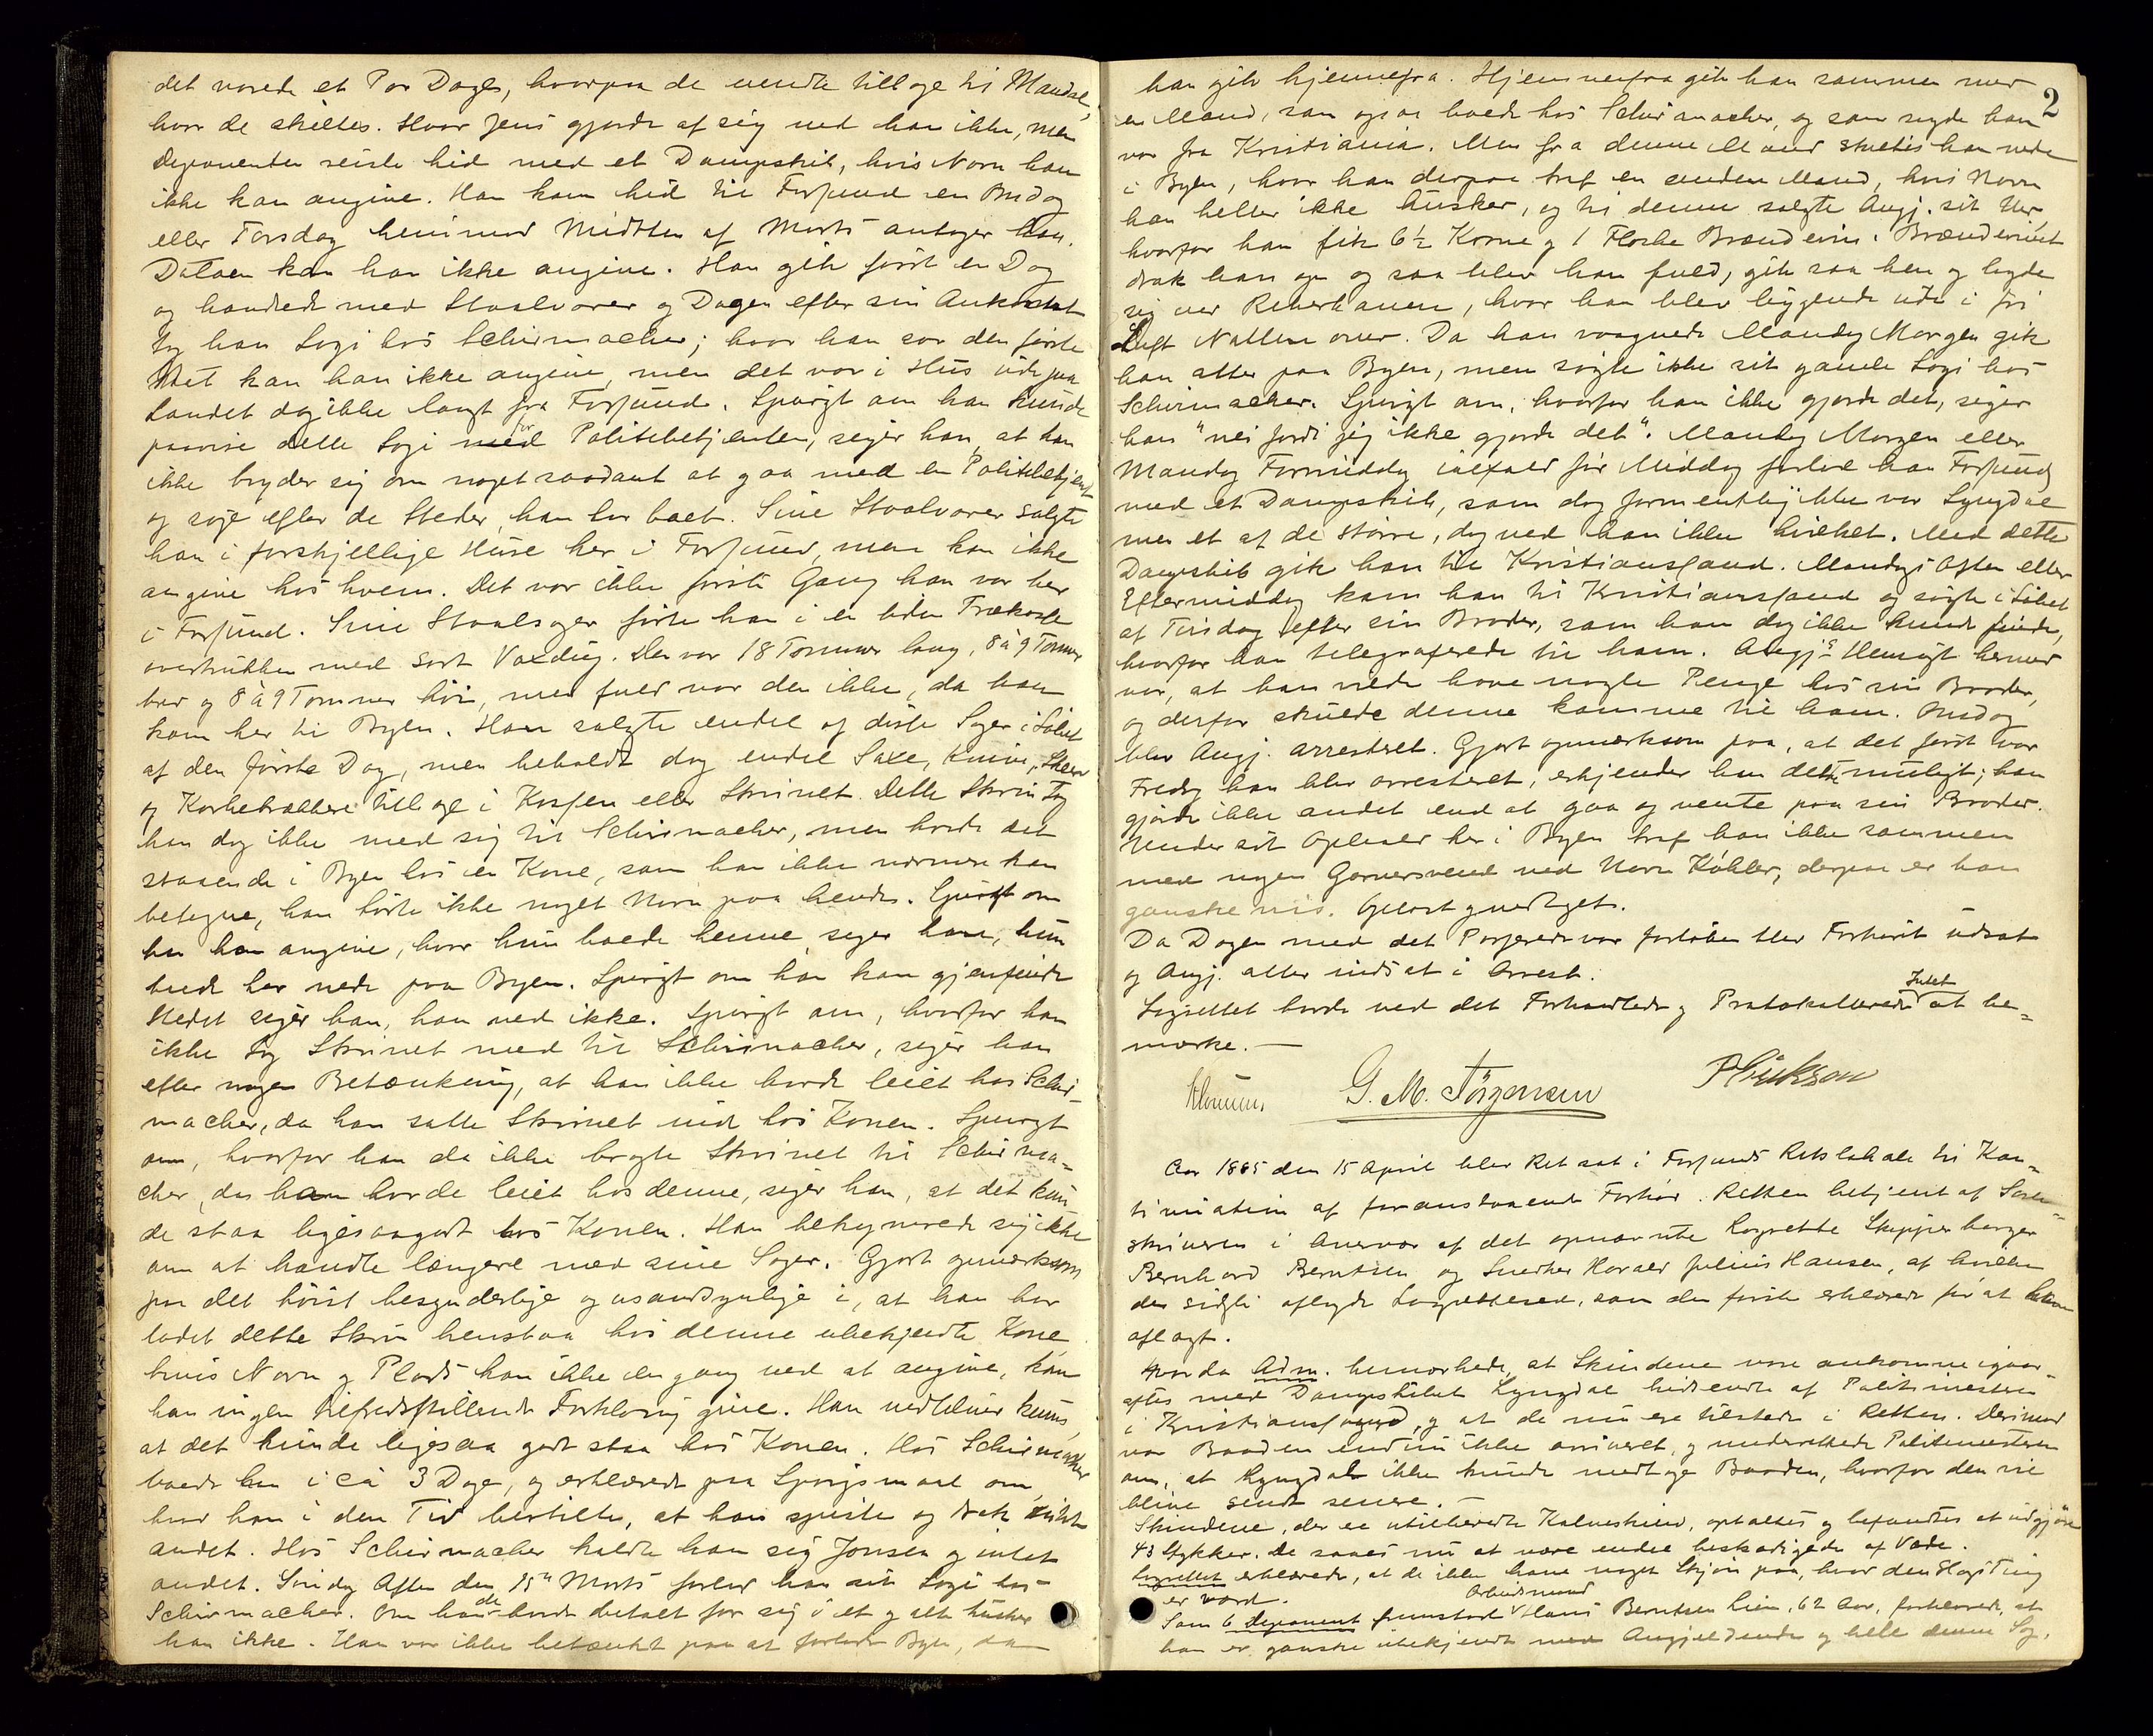 det varede et Par Dage, hvorpaa de vendte tillage til Mandal,
hvor de skiltes. Hvor Jens gjorde af sig ved han ikke, men
Deponenten reiste hid med et Dampskib, hvis Navn han
ikke kan angive. Han kom hid til Farsund en Onsdag
eller Torsdag henimod Midten af Marts antager han.
Datoen kan han ikke angive. Han gik først en Dag
og handlede med Staalvarer og Dagen efter sin Ankomst
tog han Logi hos Schirmacher; hvor han var den første
Nat kan han ikke angive, men det var i Hus ude paa
Landet dog ikke langt fra Farsund. Spurgt om han kunde
paavise dette Logi for Politibetjenten, siger han, at han
ikke bryder sig om noget saadant at gaa med en Politibetjent
og søge efter de Steder, han har boet. Sine Staalvarer solgte
han i forskjellige Huse her i Farsund, men kan ikke
angive hos hvem. Det var ikke første Gang han var her
i Farsund. Sine Staalsager førte han i en liden Trækasse
overtrukken med sort Voxdug. Den var 18 Tommer lang, 8 à 9 Tommer
bred og 8 à 9 Tommer høi, men fuld var den ikke, da han
kom her til Byen. Han solgte endel af disse Sager i Løbet
af den første Dag, men beholdt dog endel Saxe, Knive, Skeer
og Korketrækkere tilbage i Kassen eller Skrinet. Dette Skrin tog
han dog ikke med sig til Schirmacher, men havde det
staaende i Byen hos en Kone, som han ikke nærmere kan
betegne, han hørte ikke noget Navn paa hende. Spurgt om
han kan angive, hvor hun boede henne, siger han, hun
boede her nede paa Byen. Spurgt om han kan gjenfinde
Stedet siger han, han ved ikke. Spurgt om, hvorfor han
ikke tog Skrinet med til Schirmacher, siger han
efter nogen Betænkning, at han ikke havde leiet hos Schir-
macher, da han satte Skrinet ind hos Konen. Spurgt
om, hvorfor han da ikke bragte Skrinet til Schirma-
cher, da han havde leiet hos denne, siger han, at det kun-
de staa ligesaagodt hos Konen. Han bekymrede sig ikke
om at handle længere med sine Sager. Gjort opmærksom
paa det høist besynderlige og usandsynlige i, at han har
ladet dette Skrin henstaa hos denne ubekjendte Kone
hvis Navn og Plads han ikke engang ved at angive, kan
han ingen tilfredsstillende Forklaring give. Han vedbliver kuns
at det kunde ligesaa godt staa hos Konen. Hos Schirmacher
boede han i ca 3 Dage, og erklærede paa Spørgsmaal om
hvad han i den Tid bestilte, at han spiste og drak og ikke
andet. Hos Schirmacher kaldte han sig Jonsen og intet
andet. Søndag Aften den 15de Marts forlod han sit Logi hos
Schirmacher. Om han da havde betalt for sig i et og alt husker
han ikke. Han var ikke betænkt paa at forlade Byen, da
2
han gik hjemmefra. Hjemmefra gik han sammen med
en Mand, som ogsaa boede hos Schirmacher, og som sagde han
var fra Kristiania. Men fra denne Mand skiltes han nede
i Byen, hvor han derpaa traf en anden Mand, hvis Navn
han heller ikke husker, og til denne solgte Angj. sit Uhr,
hvorfor han fik 6½ Krone og 1 Flaske Brændevin. Brændevinet
drak han op og saa blev han fuld, gik saa hen og lagde
sig ved Reberbanen, hvor han blev liggende ude i fri
Luft Natten over. Da han vaagnede Mandag Morgen gik
han atter paa Byen, men søgte ikke sit gamle Logi hos
Schirmacher. Spurgt om, hvorfor han ikke gjorde det, siger
han "nei fordi jeg ikke gjorde det". Mandag Morgen eller
Mandag Formiddag ialfald før Middag forlod han Farsund
med et Dampskib, som dog formentlig ikke var Lyngdal
men et af de større, dog ved han ikke hvilket. Med dette
Dampskib gik han til Kristianssand. Mandags Aften eller
Eftermiddag kom han til Kristianssand og søgte i Løbet
af Tirsdag efter sin Broder, som han dog ikke kunde finde,
hvorfor han telegraferede til ham. Angj.s Hensigt hermed
var, at han vilde have nogle Penge hos sin Broder,
og derfor skulde denne komme til ham. Onsdag
blev Angj. arresteret. Gjort opmærksom paa, at det først var
Fredag han blev arresteret, erkjender han dette muligt; han
gjorde ikke andet end at gaa og vente paa sin Broder.
Under sit Ophold her i Byen traf han ikke sammen
med nogen Garversvend ved Navn Køhler, derpaa er han
ganske vis. Oplæst og vedtaget.
Da Dagen med det Passerede var forløben blev Forhøret udsat
og Angj. atter indsat i Arrest.
Lagrettet havde ved det Forhandlede og Protokollerede Intet at be-
mærke. —
G. M. Törgensen
Aar 1885 den 15 April blev Ret sat i Farsunds Retslokale til Kon-
tinuation af foranstaaende Forhør. Retten betjent af Soren-
skriveren i Overvær af det opnævnte Lagrette Skipper borger
Bernhard Berntsen og Snedker Harald Julius Hansen, af hvilke
den sidste aflagde Lagretteed, som den første erklærede før at have
aflagt.
Hvorda Adm. bemærkede, at Skindene vare ankomne igaar-
aftes med Dampskibet Lyngdal hidsendte af Politimesteren
i Kristianssand, og at de nu ere tilstede i Retten. Derimod
var Baaden endnu ikke arriveret, og underrettede Politimesteren
om, at Lyngdal ikke kunde medtage Baaden, hvorfor den vil
blive sendt senere. —
Skindene, der er utilberedte Kalveskind, optaltes og befandtes at udgjøre
43 Stykker. De saaes nu at være endel beskadigede af Væde.
Lagrettet erklærede, at de ikke have noget Skjøn paa, hvad den Slags Ting
er værd.
Som 6 Deponent fremstod Arbeidsmand Hans Berntsen Lien, 62 Aar, forklarede, at
han er ganske ubekjendt med Angjeldende og hele denne Sag.